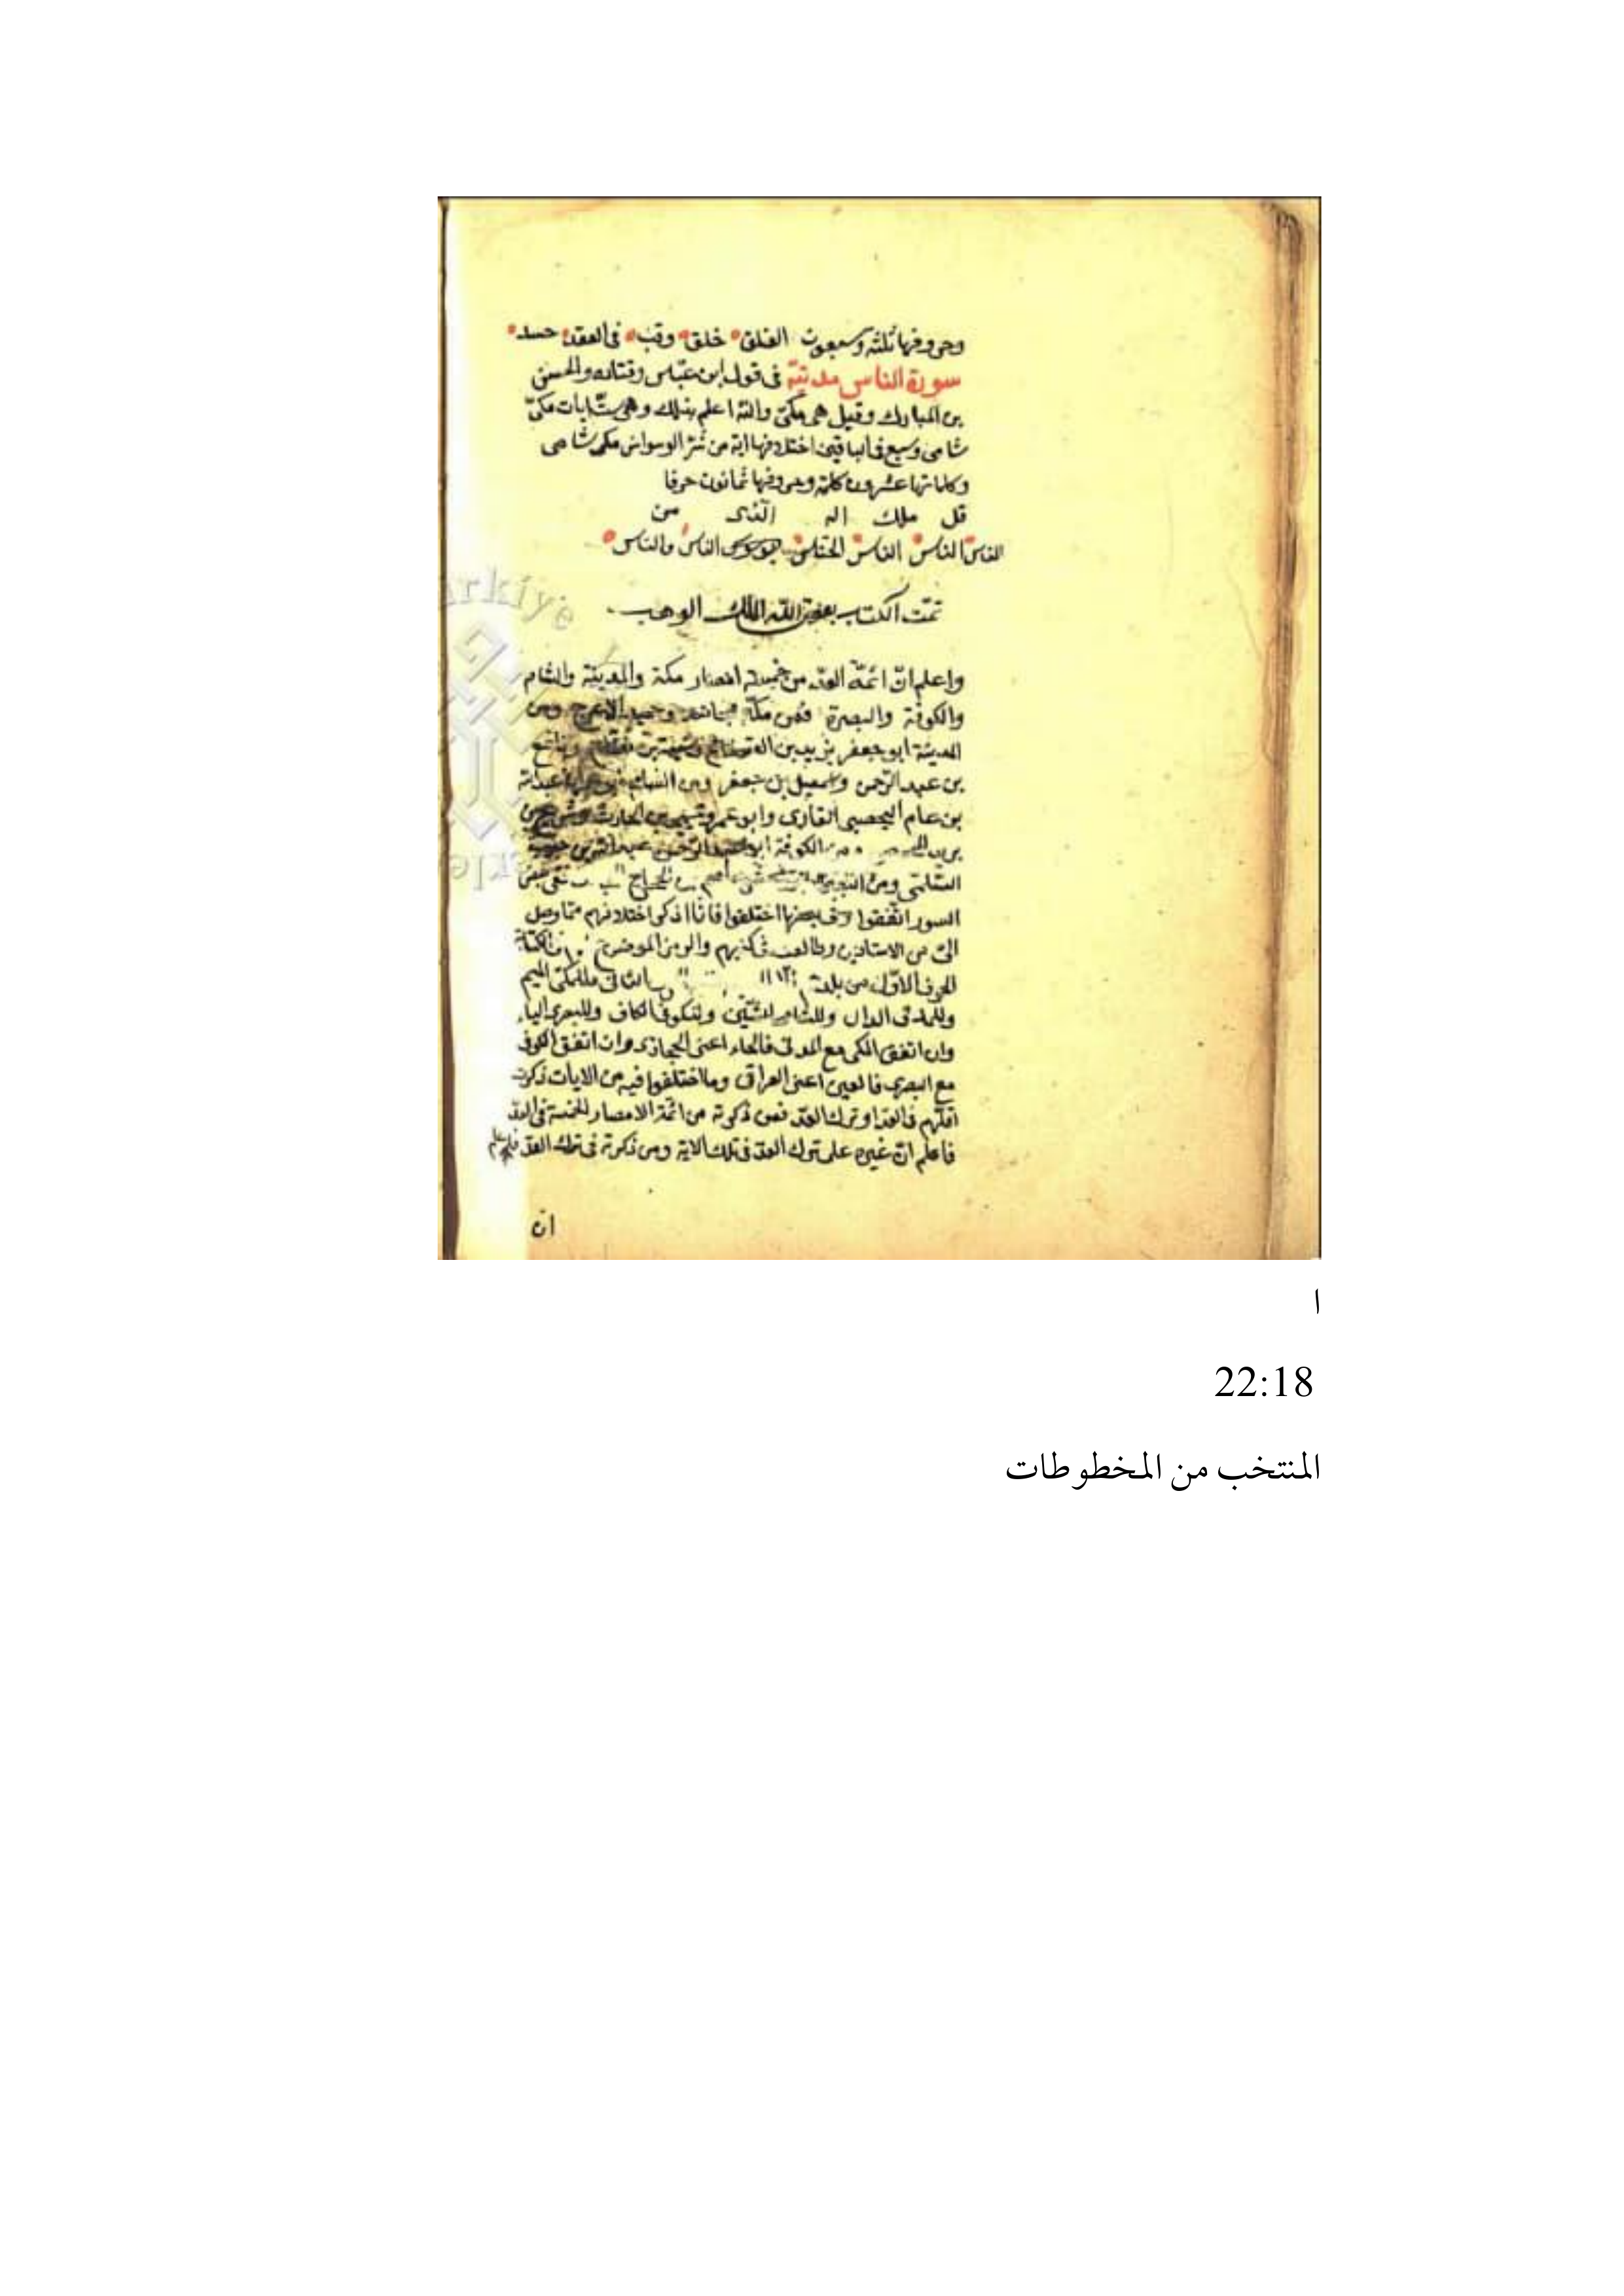 وحروفها ثلثة وسبعون الفلق خلق وقب فى العقد حسد
سورة الناس مدنيّة فى قول ابن عبّاس وقتاده والحسن
بن المبارك وقيل هى مكيّ والله اعلم بذلك وهى ستّ ايات مكيّ
شامى وسبع فى الباقين اختلافها اية من شر الوسواس مكى شامى
وكلماتها عشرون كلمة وحروفها ثمانون حرفا
قل ملك اله الّذى من
الناس الناس الناس الخنّاس يوسوس الناس والناس
تمّت الكتاب بعون الله الملك الوهاب
واعلم انّ ائمّة العدّ من خمسة امصار مكة والمدينة والشام
والكوفة والبصرة فمن مكّة مجاهد وحميد الاعرج ومن
المدينة ابو جعفر يزيد بن القعقاع وشيبة بن نصاح ونافع
بن عبد الرّحمن واسمعيل بن جعفر ومن الشام عبدالله
بن عامر اليحصبى القارى وابو عمرو يحيى بن الحارث
الكوفة ابو عبد الرّحمن عبد الله بن حبيب
السّلمى ومن
السور اتّفقوا وفى بعضها اختلفوا فانا اذكر اختلافهم ممّا وصل
الىّ من الاستاذين وطالعت فى كتبهم والرمز الموضوع
الحرف الاوّل من بلدة فللمكّى الميم
وللمدنى الدال وللشامى الشّين وللكوفى الكاف وللبصرى الباء
وان اتفق المكى مع المدنى فالحاء اعنى الحجازى وان اتفق الكوفى
مع البصرى فالعين اعنى العراقى وما اختلفوا فيه من الايات ذكرت
اقلّهم فى العدّ او ترك العدّ فمن ذكرته من ائمّة الامصار الخمسة فى العدّ
فاعلم انّ غيره على ترك العدّ فى تلك الاية ومن ذكرته فى ترك العدّ فليعلم
ان
ا
22:18
المنتخب من المخطوطات